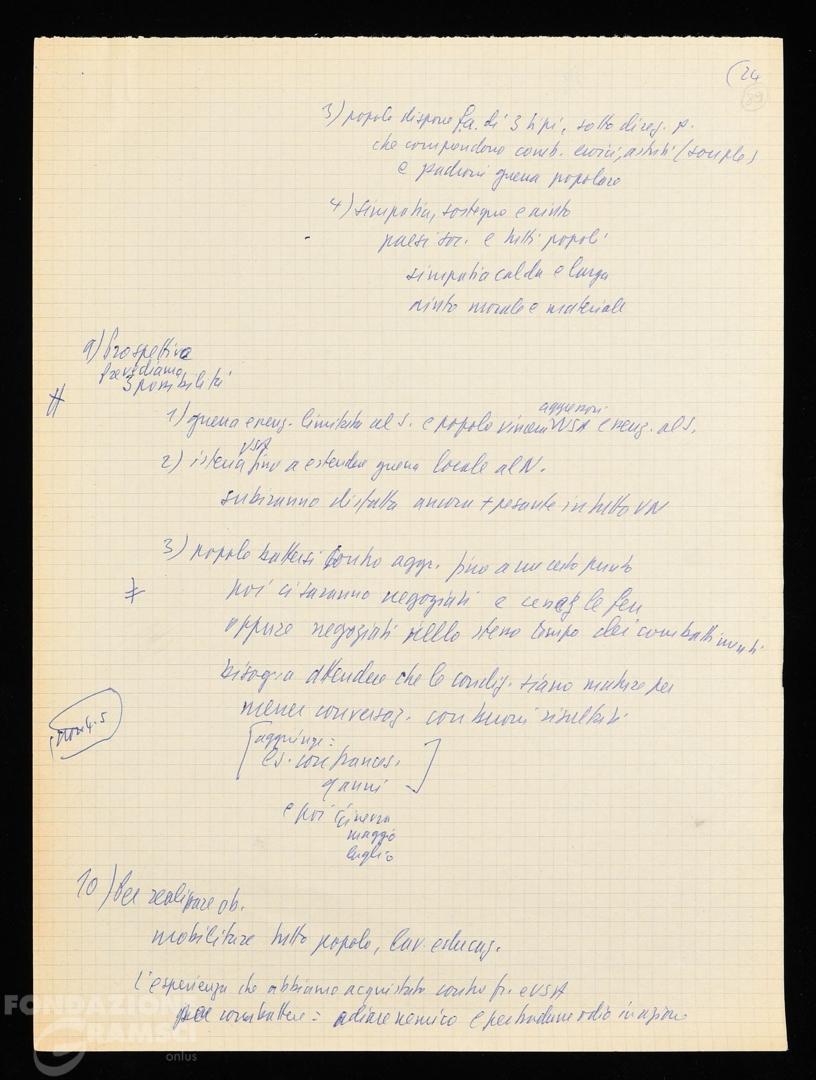 (24
89
3) popolo dispone f.a. di 3 tipi, sotto direz. p.
che comprendono comb. eroici, astuti (souples)
e padroni guerra popolare
4) simpatia, sostegno e aiuto
paesi soc. e tutti popoli
simpatia calda e larga
aiuto morale e materiale
9) Prospettiva
prevediamo
3 possibilità
aggressori
1) guerra e neg. limitata al S. e popolo vincerà USA e neg. al S.
USA
2) isteria fino a estendere guerra locale al N.
subiranno disfatta ancora + pesante in tutto VN
3) popolo battersi contro aggr. fino a un certo punto
poi ci saranno negoziati e le feu
oppure negoziati nello stesso tempo dei combattimenti
bisogna attendere che le condiz. siano mature per
mener conversaz. con buoni risultati
[aggiunge:
es. con francesi
9 anni]
e poi Ginevra
maggio
luglio
10) Per realizzare ob.
mobilitare tutto popolo, lav. educaz.
L'esperienza che abbiamo acquistato contro fr. e USA
per combattere = odiare nemico e per tradurre odio in azione
FONDAZIONE
GRAMSCI
onlus